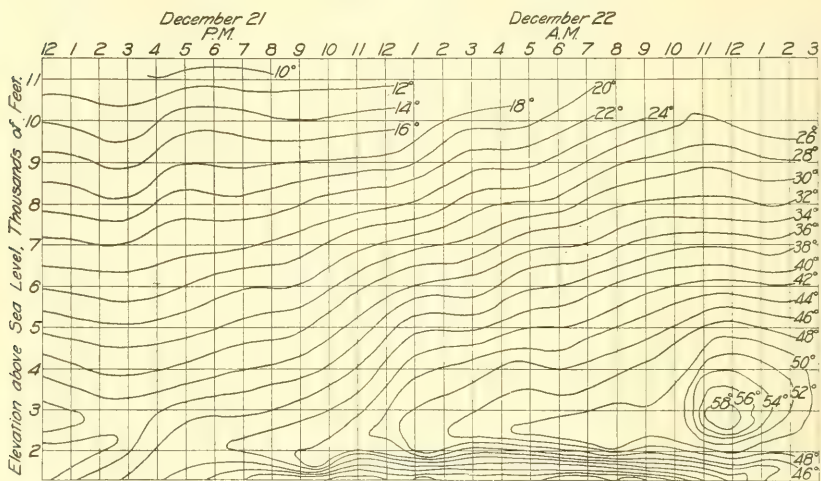 December 21
P.M.
December 22
A.M.
12 1 2 3 4 5 6 7 8 9 10 11 12 1 2 3 4 5 6 7 8 9 10 11 12 1 2 3
Elevation above Sea Level, Thousands of Feet.
11
10
9
8
7
6
5
4
3
2
10°
12°
14°
16°
18°
20°
22°
24°
26°
28°
30°
32°
34°
36°
38°
40°
42°
44°
46°
48°
50°
58° 56° 54° 52°
48°
46°